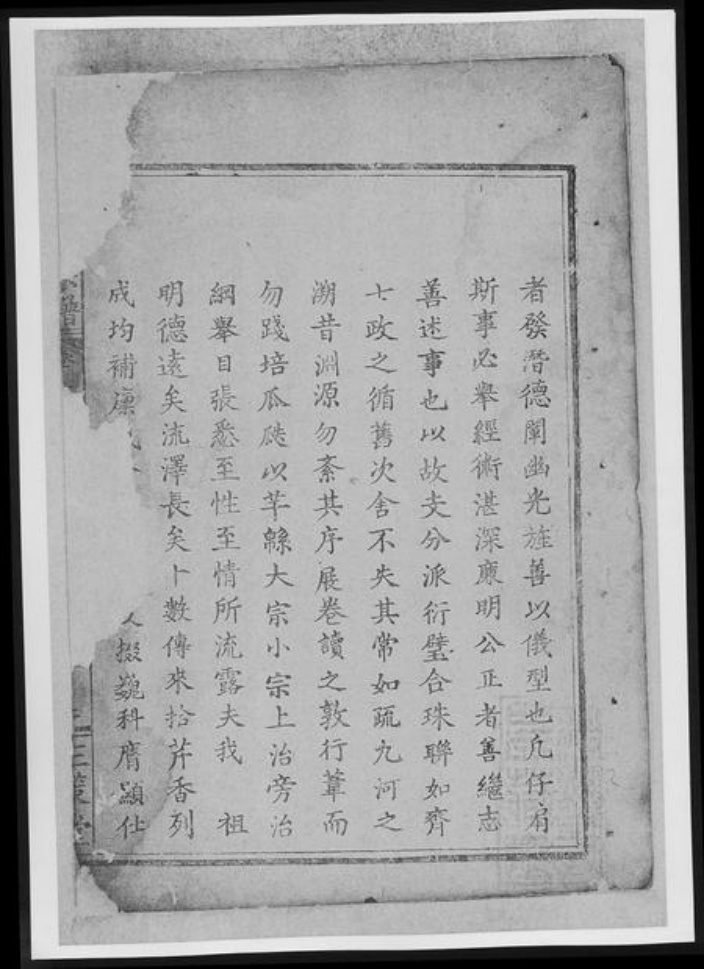 者發潛德闡幽光旌善以儀型也凡仔肩
斯事必舉經術湛深廉明公正者善繼志
善述事也以故支分派衍璧合珠聯如齊
七政之循舊次舍不失其常如疏九河之
溯昔淵源勿紊其序展卷讀之敦行葦而
勿踐培瓜瓞以芊綿大宗小宗上治旁治
綱舉目張悉至性至情所流露夫我 祖
明德遠矣流澤長矣卜數傳來拾芹香列
成均補廩
掇巍科膺顯仕
譜
三